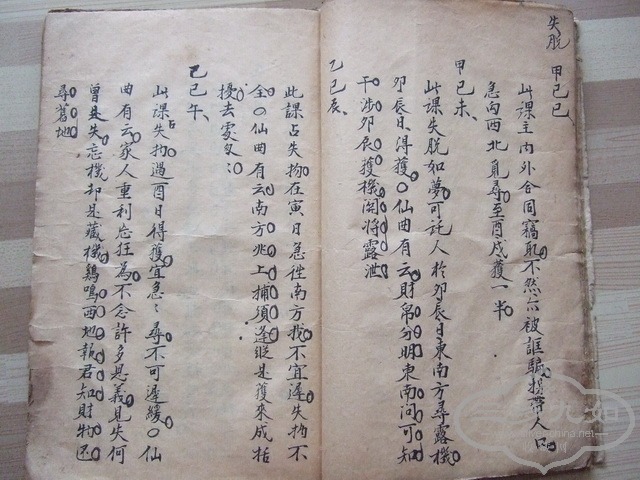 失脱
甲己巳、
此課主内外合同竊取不然六被誆騙拐帶人口
急向西北身尋至酉戌獲一半
甲己未、
此課失脱如夢可託人於卯辰日東南方尋露機
卯辰日得獲〇仙曲有云財帛分明東南问可知
干涉卯辰獲機関將露泄
乙己辰、
此課占失物在寅日急往南方找不宜遲失物不
全〇仙曲有云南方兆上捕須逢縱是獲來成括
擾去憂
乙己午、
此課占失物遇酉日得獲宜急〻尋不可遲緩〇仙
曲有云家人重利忘狂為不念許多恩義見失何
曾是失忘機却是藏機鷄鳴西地報君知財物还
尋舊地